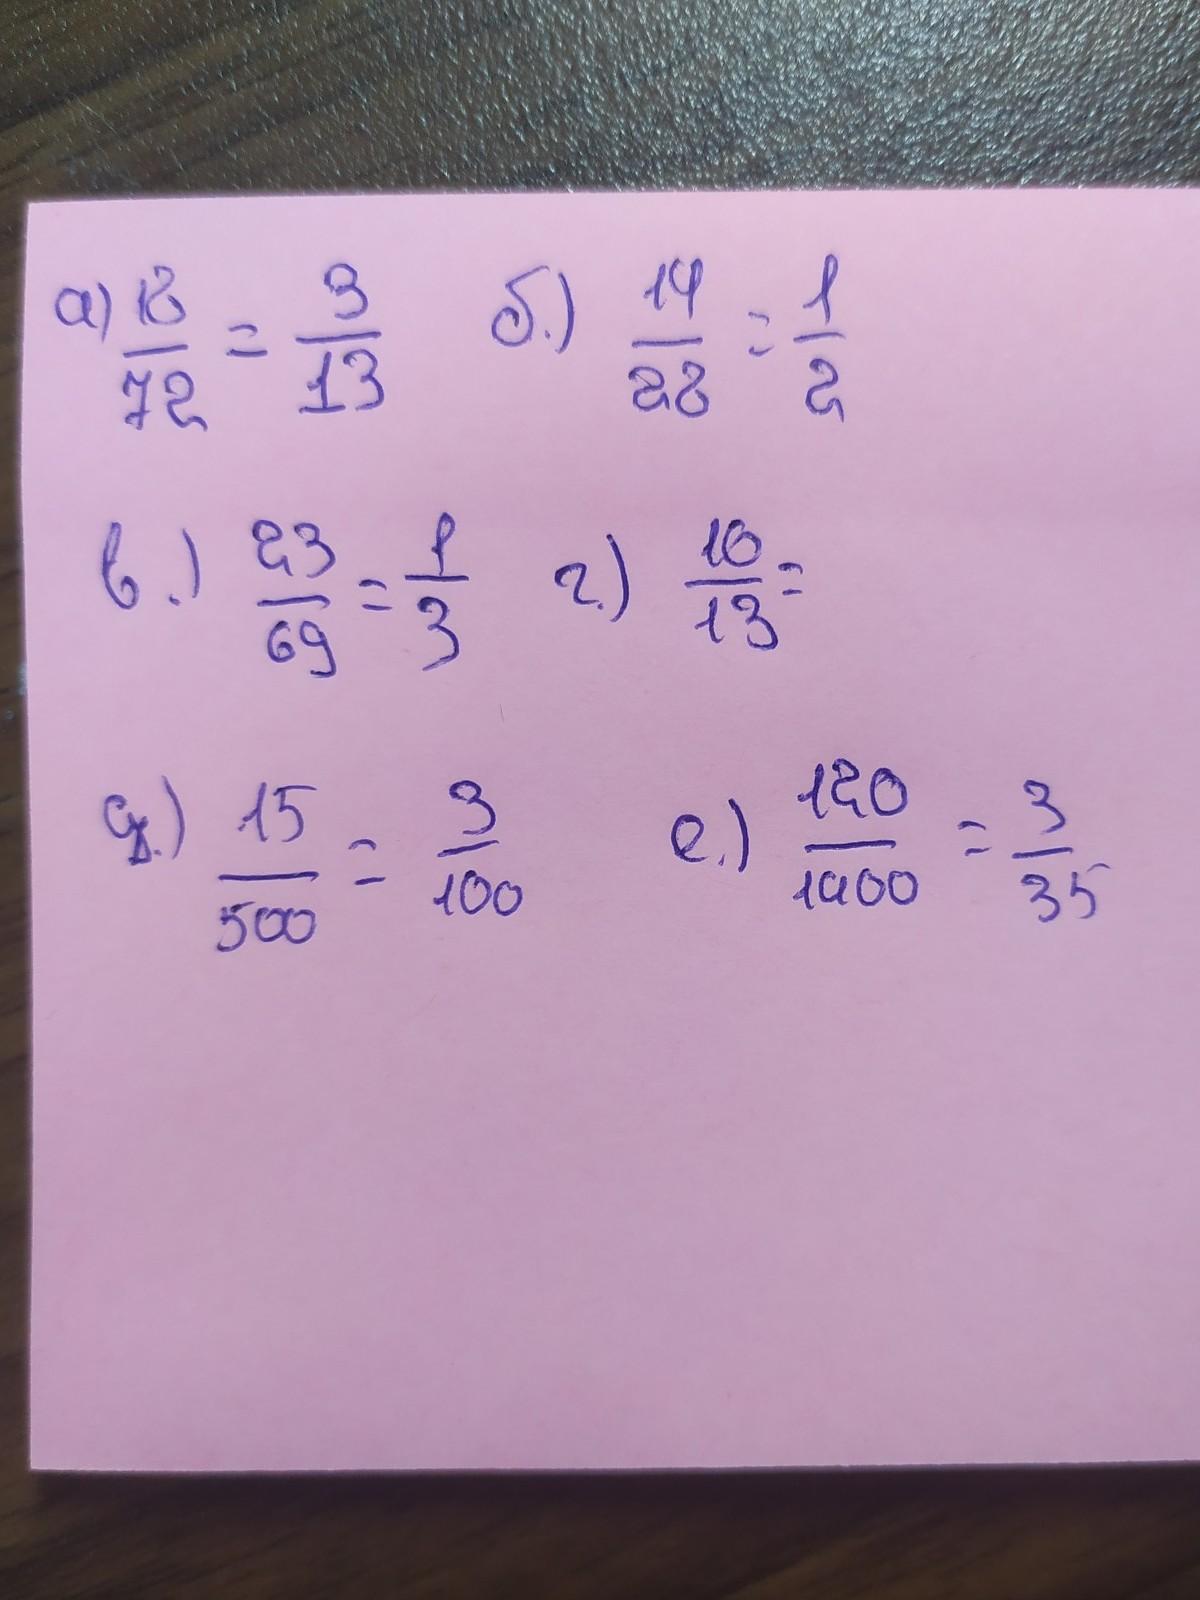 а) 18/72 = 3/13 б.) 14/28 = 1/2
в.) 23/69 = 1/3 г.) 10/13 =
д.) 15/500 = 3/100 е.) 120/1400 = 3/35